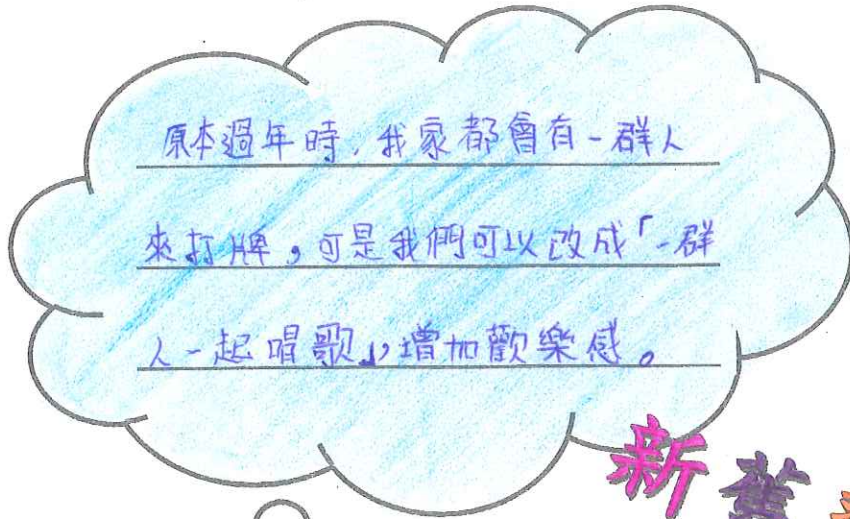 原本過年時,我家都會有一群人
來打牌,可是我們可以改成「一群
人一起唱歌」,增加歡樂感。
新舊